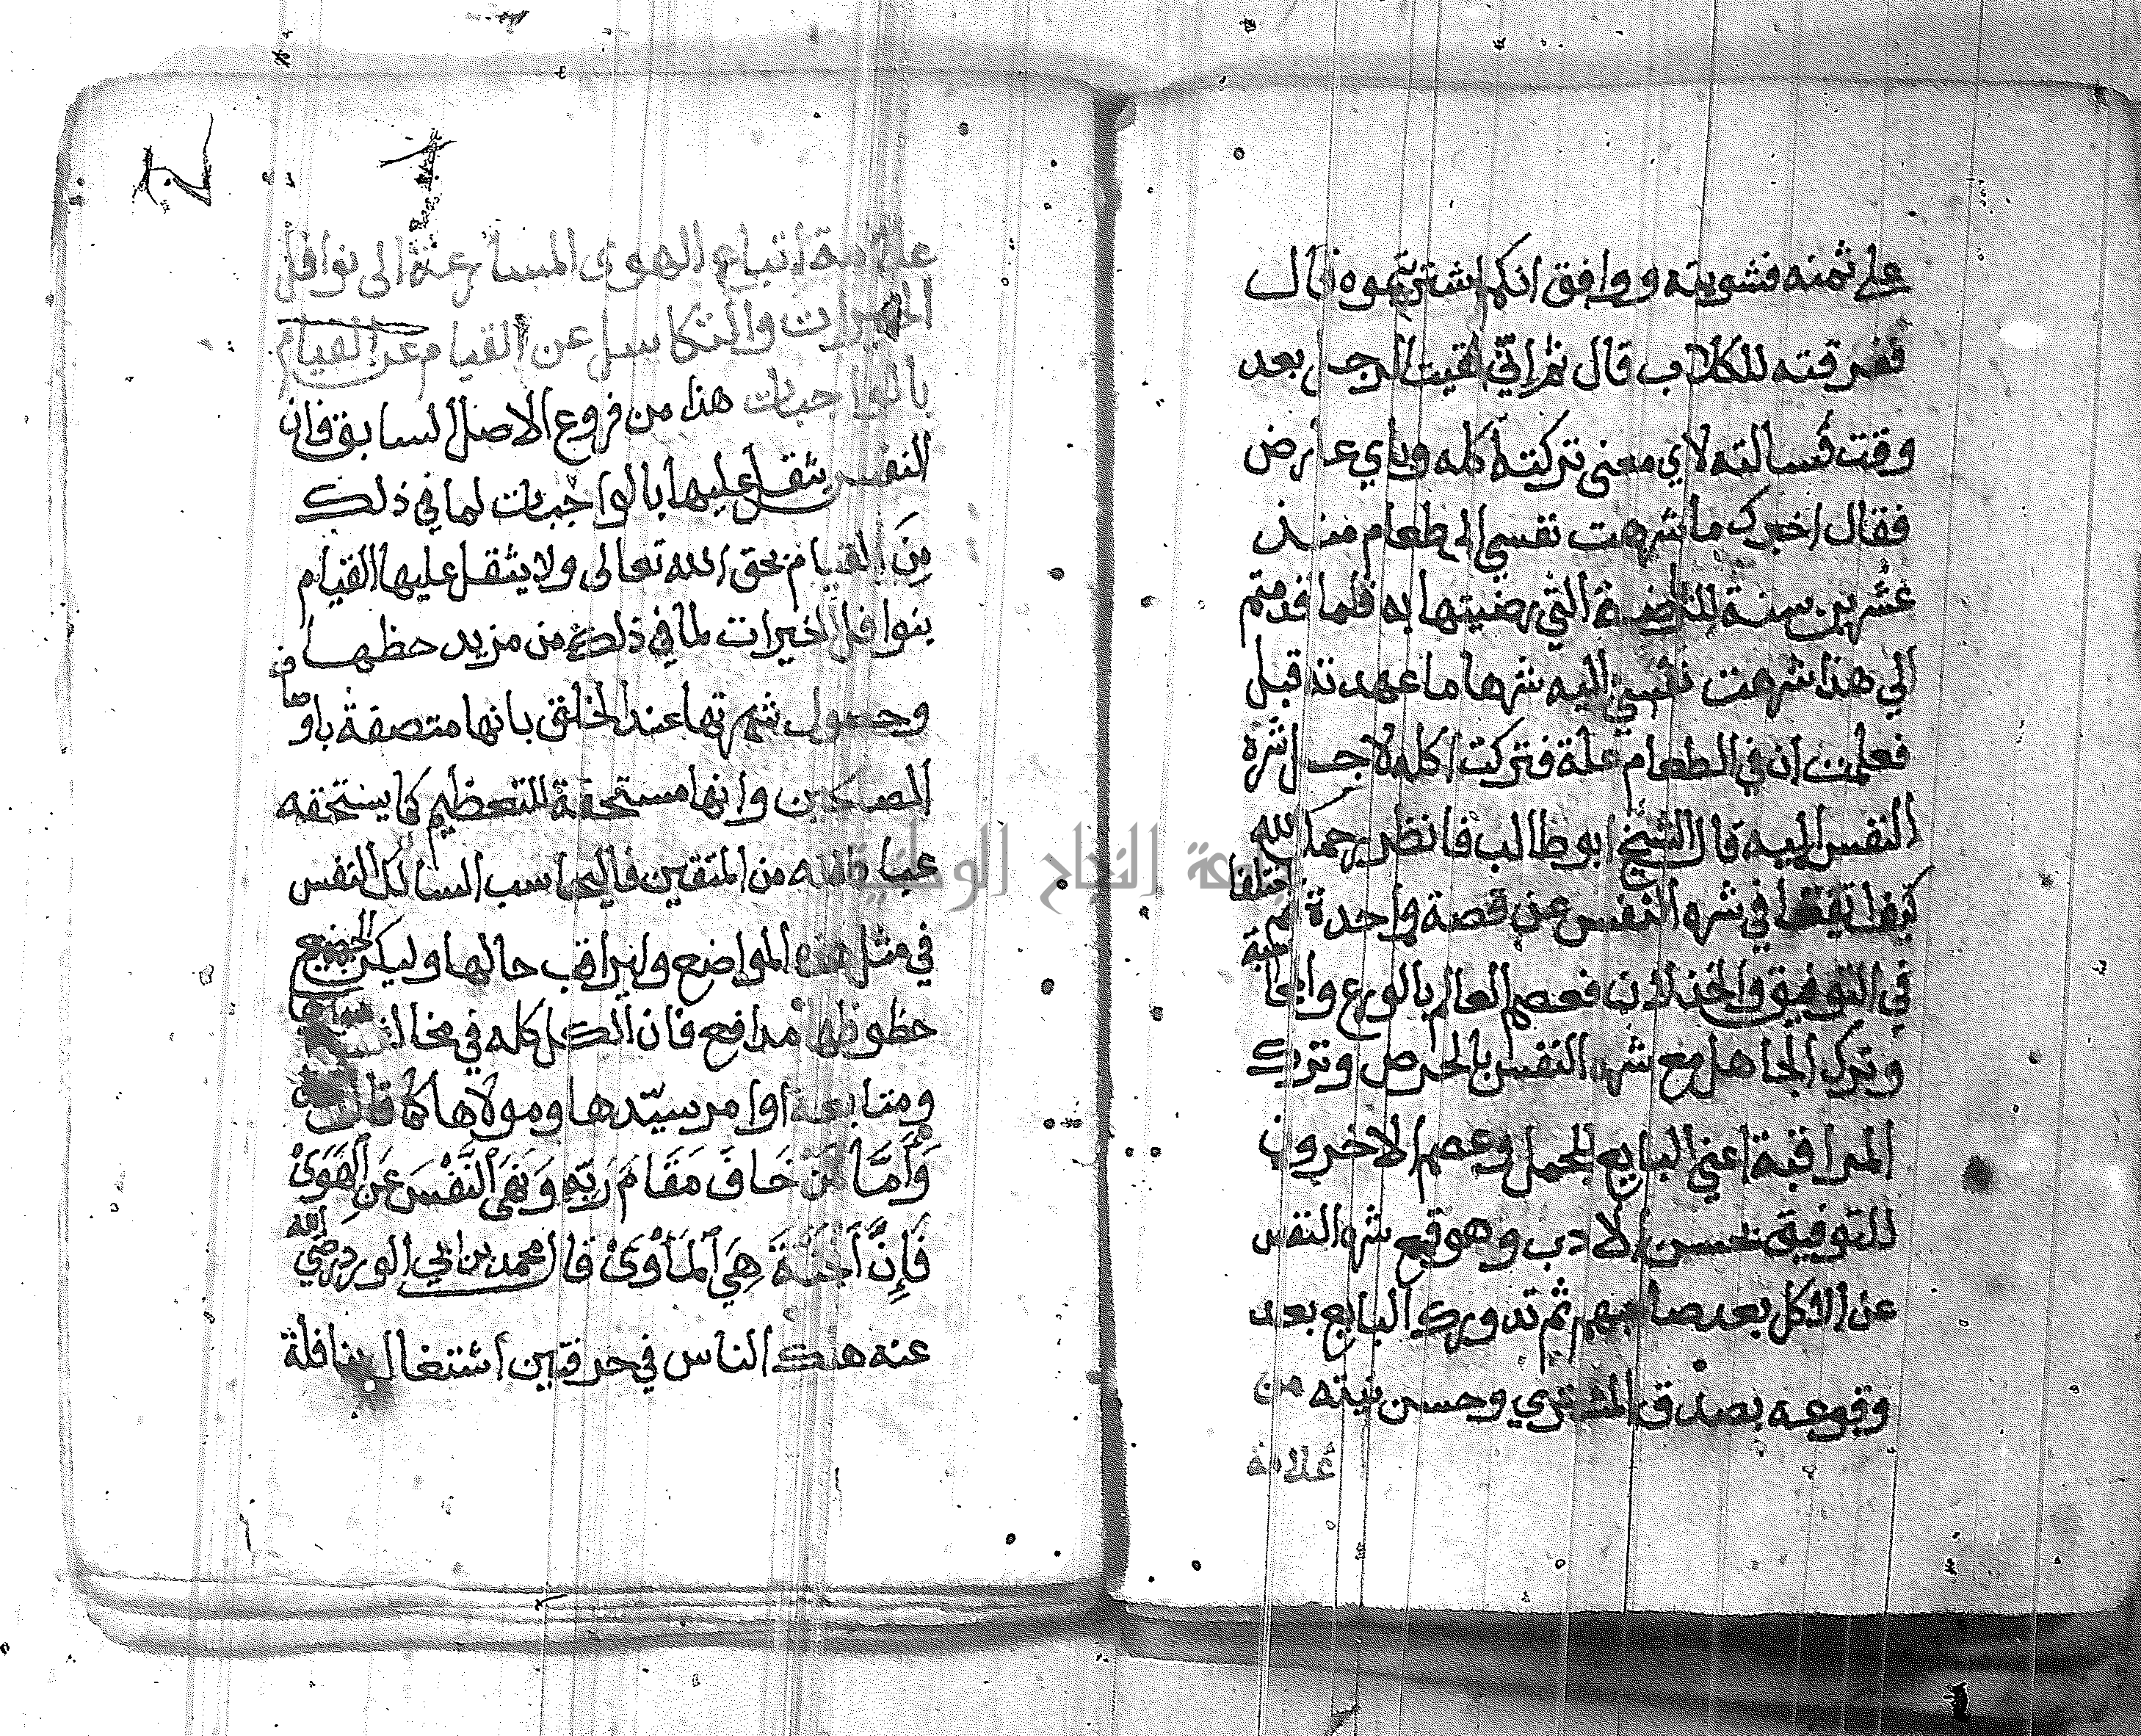 على ثمنه فشويته ووافق انكم اشتريتموه قال
ففرقته للكلاب قال ثم اني لقيت الرجل بعد
وقت فسالته لاي معنى تركت اكله وباي عارض
فقال اخبرك ما شرهت نفسي الى طعام منذ
عشرين سنة للرياضة التي رضيتها به فلما قدمتم
الي هذا شرهت نفسي اليه شرها ما عهدته قبل
فعلمت ان في الطعام علة فتركت اكله لاجل شره
النفس اليه قال الشيخ ابو طالب فانظر رحمك الله
كيف اتفقا في شره النفس عن قصة واحدة ثم اختلفا
في التوفيق والخذلان فعصم العالم بالورع والمحاسبة
وترك الجاهل مع شره النفس بالحرص وترك
المراقبة اعني البايع للحمل وعصم الاخرون
للتوفيق بحسن الادب وهو قمع شره النفس
عن الاكل بعد صاحبهم ثم تدورك البايع بعد
وقوعه بصدق المشتري وحسن نيته من
علامة
علامة اتباع الهوى المسارعة الى نوافل
الخيرات والتكاسل عن القيام عن القيام
بالواجبات هذا من فروع الاصل السابق فان
النفس يثقل عليها بالواجبات لما في ذلك
مِنَ القيام بحق الله تعالى ولا يثقل عليها القيام
بنوافل الخيرات لما في ذلك من مزيد حظها
وحصول شهرتها عند الخلق بانها متصفة باوصاف
المصلحين وانها مستحقة للتعظيم كما يستحقه
عباد الله من المتقين فاليحاسب السالك النفس
في مثل هذه المواضع وليراقب حالها وليكن لجميع
حظوظها مدافع فان الكل كله في
ومتابعة اوامر سيّدها ومولاها كما قال
وَأَمَّا مَنْ خَافَ مَقَامَ رَبِّهِ وَنَهَى النَّفْسَ عَنِ الْهَوَىٰ
فَإِنَّ الْجَنَّةَ هِيَ الْمَأْوَىٰ قال محمد بن ابي الورد رضي الله
عنه هلك الناس في حرفتين اشتغال بنافلة
جامعة النجاح الوطنية